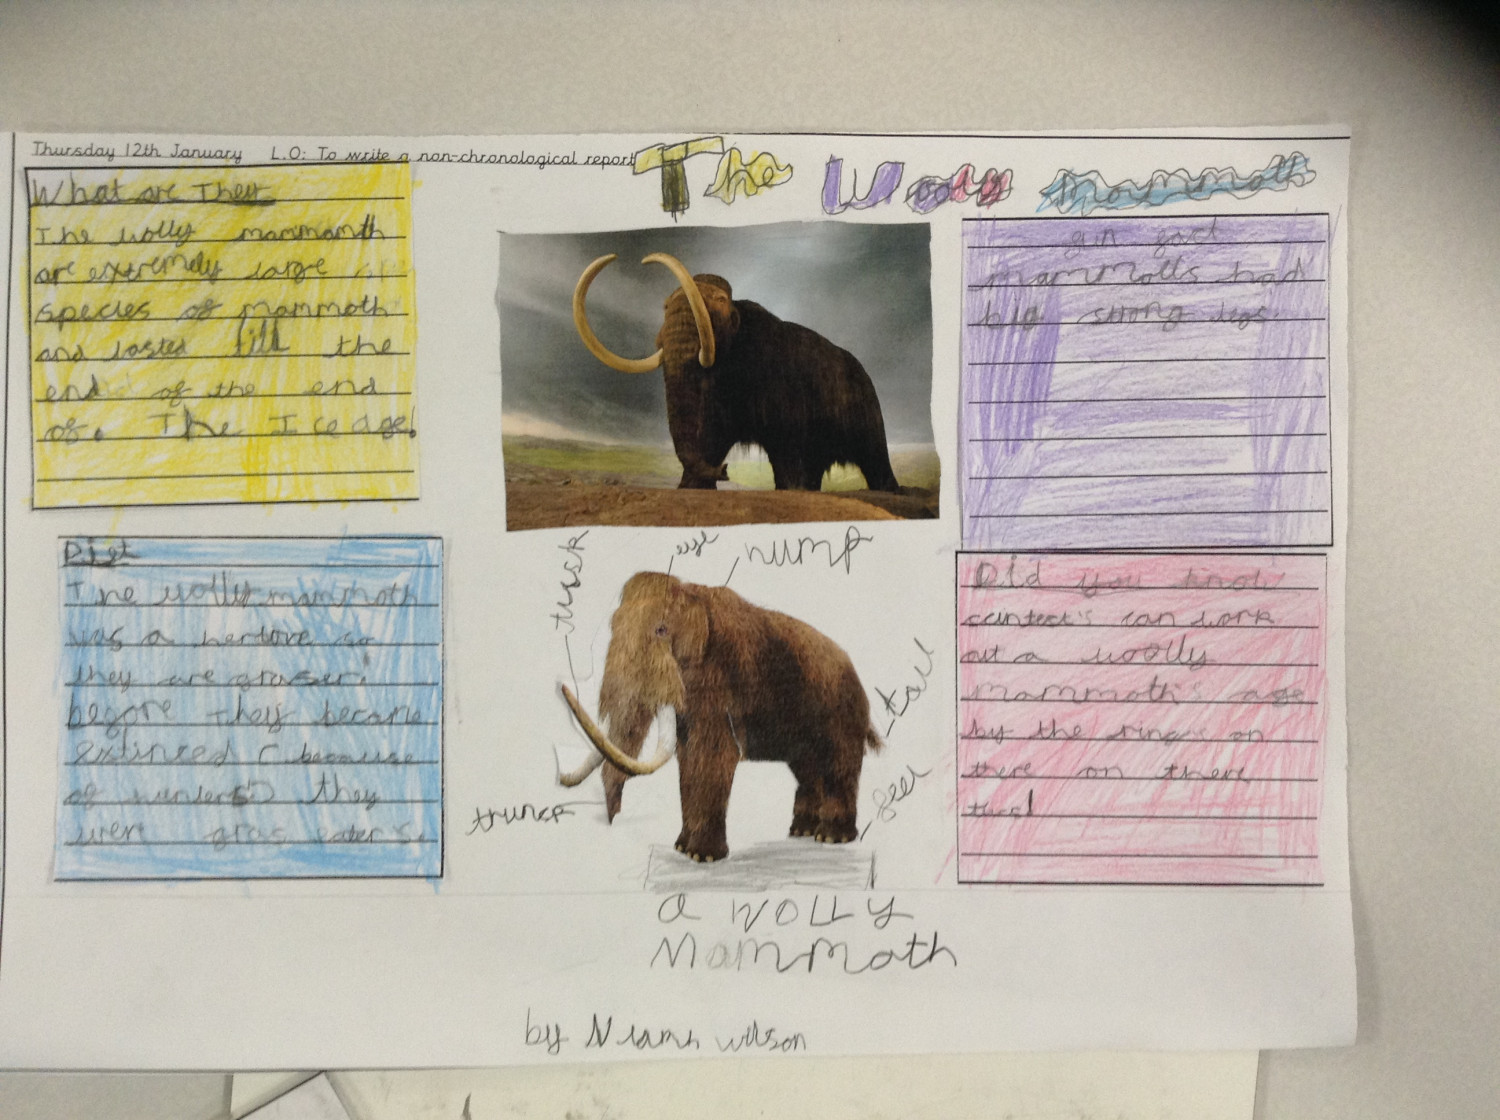 Thursday 12th January L.O: To write a non-chronological report
The Wooly Mammoth
What are They
The wolly mammanth
are extremely large
species of mammoth
and lasted till the
end of the end
of. The Ice age!
Diet
The wolly mammoth
was a herbove so
they are graser!
before they became
extinced ( because
of hunters) they
wer gras eater's.
gun fact
mammolls had
big strong legs.
Did you know
cintect's can work
out a woolly
mammoth's age
by the rings on
there on there
tusl
tusk
eye
hump
tail
feel
trunck
a wolly
Mammoth
by Niamh wilson